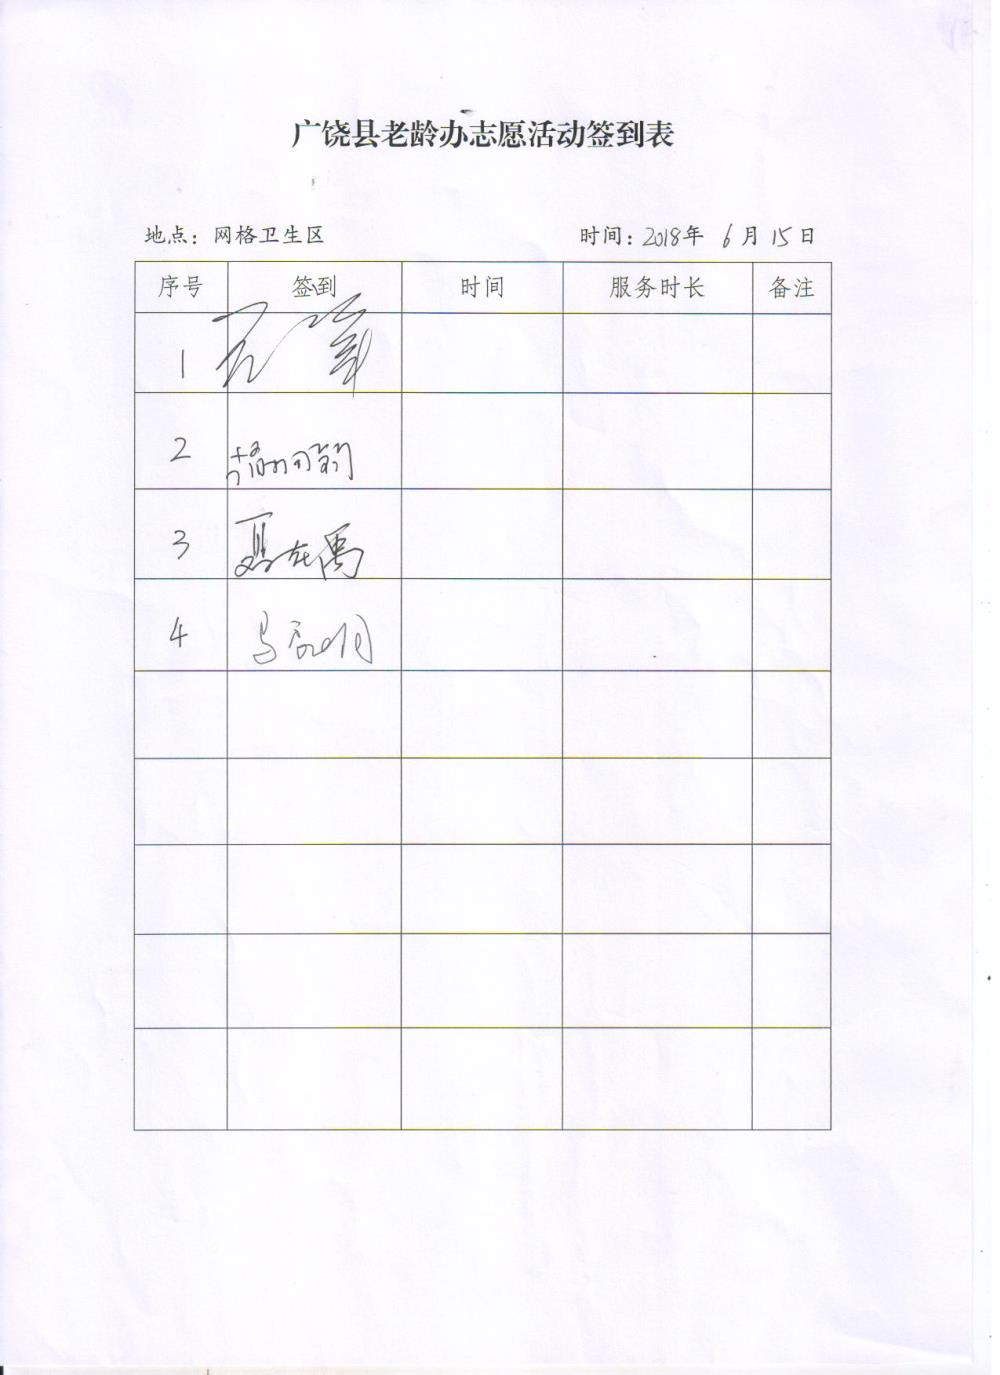 广饶县老龄办志愿活动签到表
地点：网格卫生区 时间：2018年 6月15日
序号 签到 时间 服务时长 备注
1
2
3 聂在禹
4